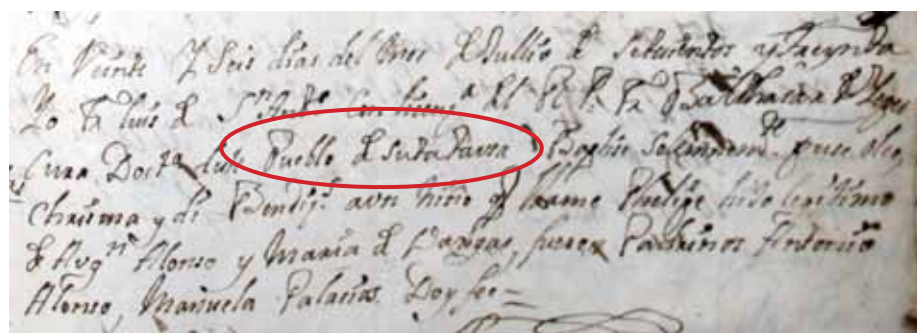 En Veinte Y Seis dias del Mes d Jullio d Setesientos y treynta
Yo Fr Luis d Sn Andrs con licenza del R P Fr d Yegos
Cura Doctro deste Pueblo d Sutatausa Baptise Solemnemte puse oleo
Chrisma y di Bendizn a vn Niño q llame Phelipe hijo lexitimo
d Augn Alonso y Maria d Vargas, fueron Padrinos Antonio
Alonso, Manuela Palacios Doy fee =